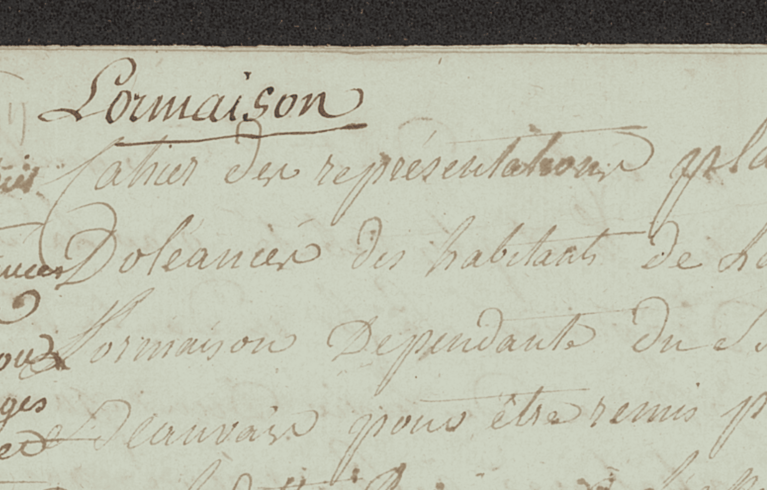 Lormaison
Cahier des représentations pla
Doléances des habitants de La
Lormaison Dependante du
Beauvais pour être remis p
ges